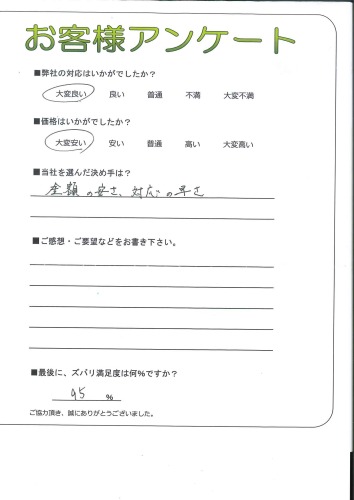 お客様アンケート
■弊社の対応はいかがでしたか?
大変良い 良い 普通 不満 大変不満
■価格はいかがでしたか?
大変安い 安い 普通 高い 大変高い
■当社を選んだ決め手は?
金額の安さ、対応の早さ
■ご感想・ご要望などをお書き下さい。
■最後に、ズバリ満足度は何%ですか?
95 %
ご協力頂き、誠にありがとうございました。